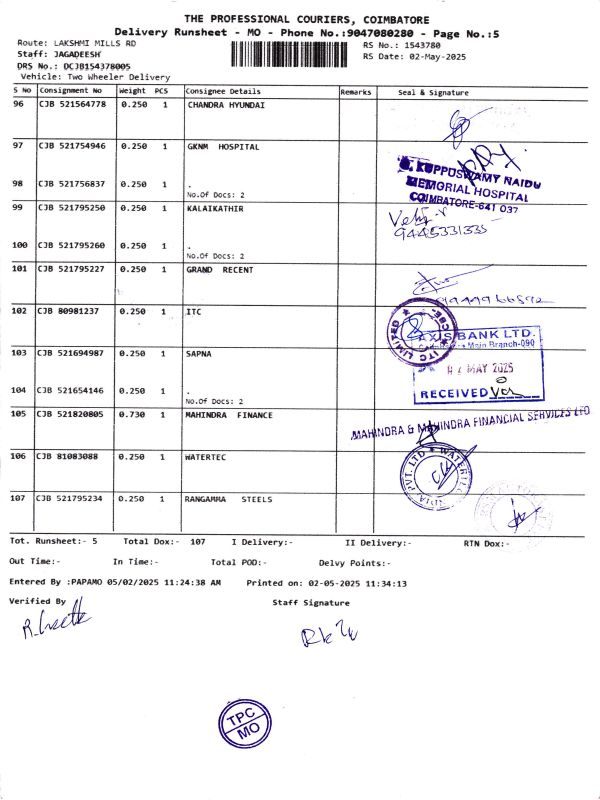 THE PROFESSIONAL COURIERS, COIMBATORE
Delivery Runsheet - MO - Phone No.:9047080280 - Page No.:5
Route: LAKSHMI MILLS RD
RS No.: 1543780
Staff: JAGADEESH
RS Date: 02-May-2025
DRS No.: DCJB154378005
Vehicle: Two Wheeler Delivery
S No Consignment No Weight PCS Consignee Details Remarks Seal & Signature
96 CJB 521564778 0.250 1 CHANDRA HYUNDAI
97 CJB 521754946 0.250 1 GKNM HOSPITAL
G. KUPPUSWAMY NAIDU
MEMORIAL HOSPITAL
COIMBATORE-641 037
98 CJB 521756837 0.250 1 .
No.Of Docs: 2
99 CJB 521795250 0.250 1 KALAIKATHIR
9445331335
100 CJB 521795260 0.250 1 .
No.Of Docs: 2
101 CJB 521795227 0.250 1 GRAND RECENT
102 CJB 80981237 0.250 1 ITC
ITC LIMITED
BANK LTD.
Main Branch-090
103 CJB 521694987 0.250 1 SAPNA
MAY 2025
RECEIVED
104 CJB 521654146 0.250 1 .
No.Of Docs: 2
105 CJB 521820805 0.730 1 MAHINDRA FINANCE
MAHINDRA & MAHINDRA FINANCIAL SERVICES LTD
106 CJB 81083088 0.250 1 WATERTEC
PVT. LTD
107 CJB 521795234 0.250 1 RANGAMMA STEELS
Tot. Runsheet:- 5 Total Dox:- 107 I Delivery:- II Delivery:- RTN Dox:-
Out Time:- In Time:- Total POD:- Delvy Points:-
Entered By :PAPAMO 05/02/2025 11:24:38 AM Printed on: 02-05-2025 11:34:13
Verified By Staff Signature
TPC
MO